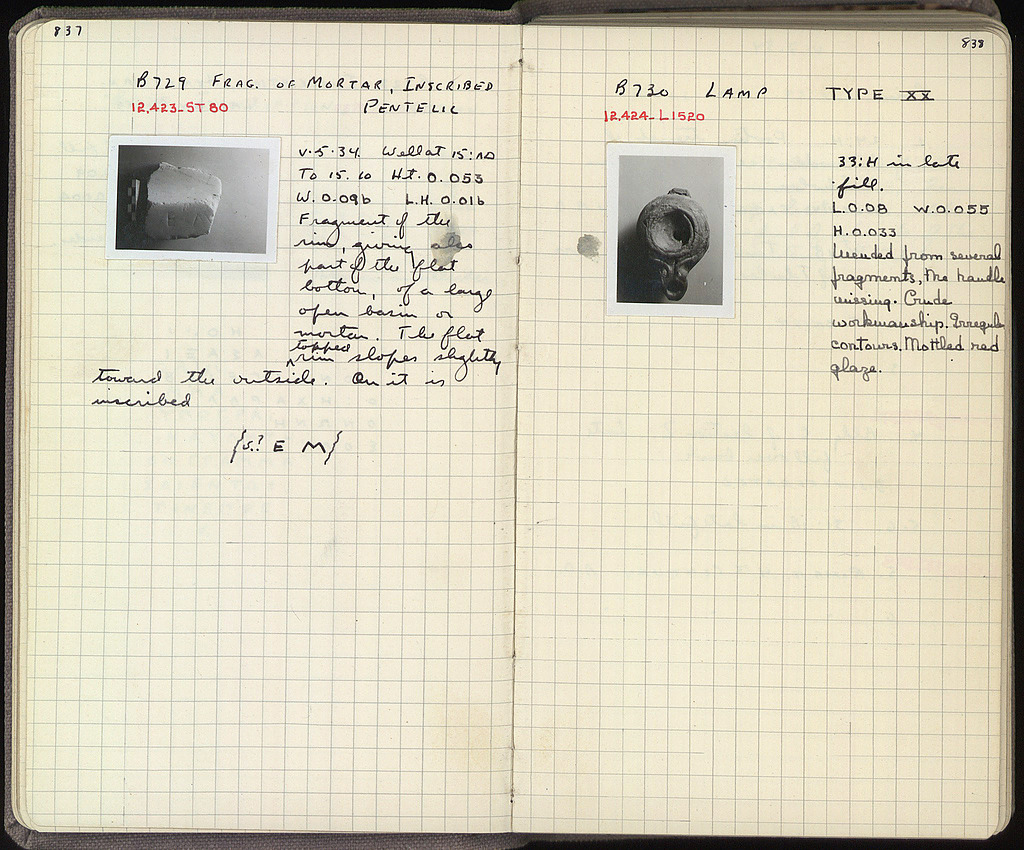 837
B729 FRAG. OF MORTAR, INSCRIBED
12,423-ST 80 PENTELIC
V.5.34. Well at 15:
To 15.10 Ht. 0.053
W. 0.096 L.H. 0.016
Fragment of the
rim, giving also
part of the flat
bottom, of a large
open basin or
mortar. The flat
topped
rim slopes slightly
toward the outside. On it is
inscribed
E M
838
B730 LAMP TYPE XX
12,424-L1520
33:H in late
fill.
L.0.08 W.0.055
H.0.033
Mended from several
fragments, the handle
missing. Crude
workmanship. Irregular
contours. Mottled red
glaze.